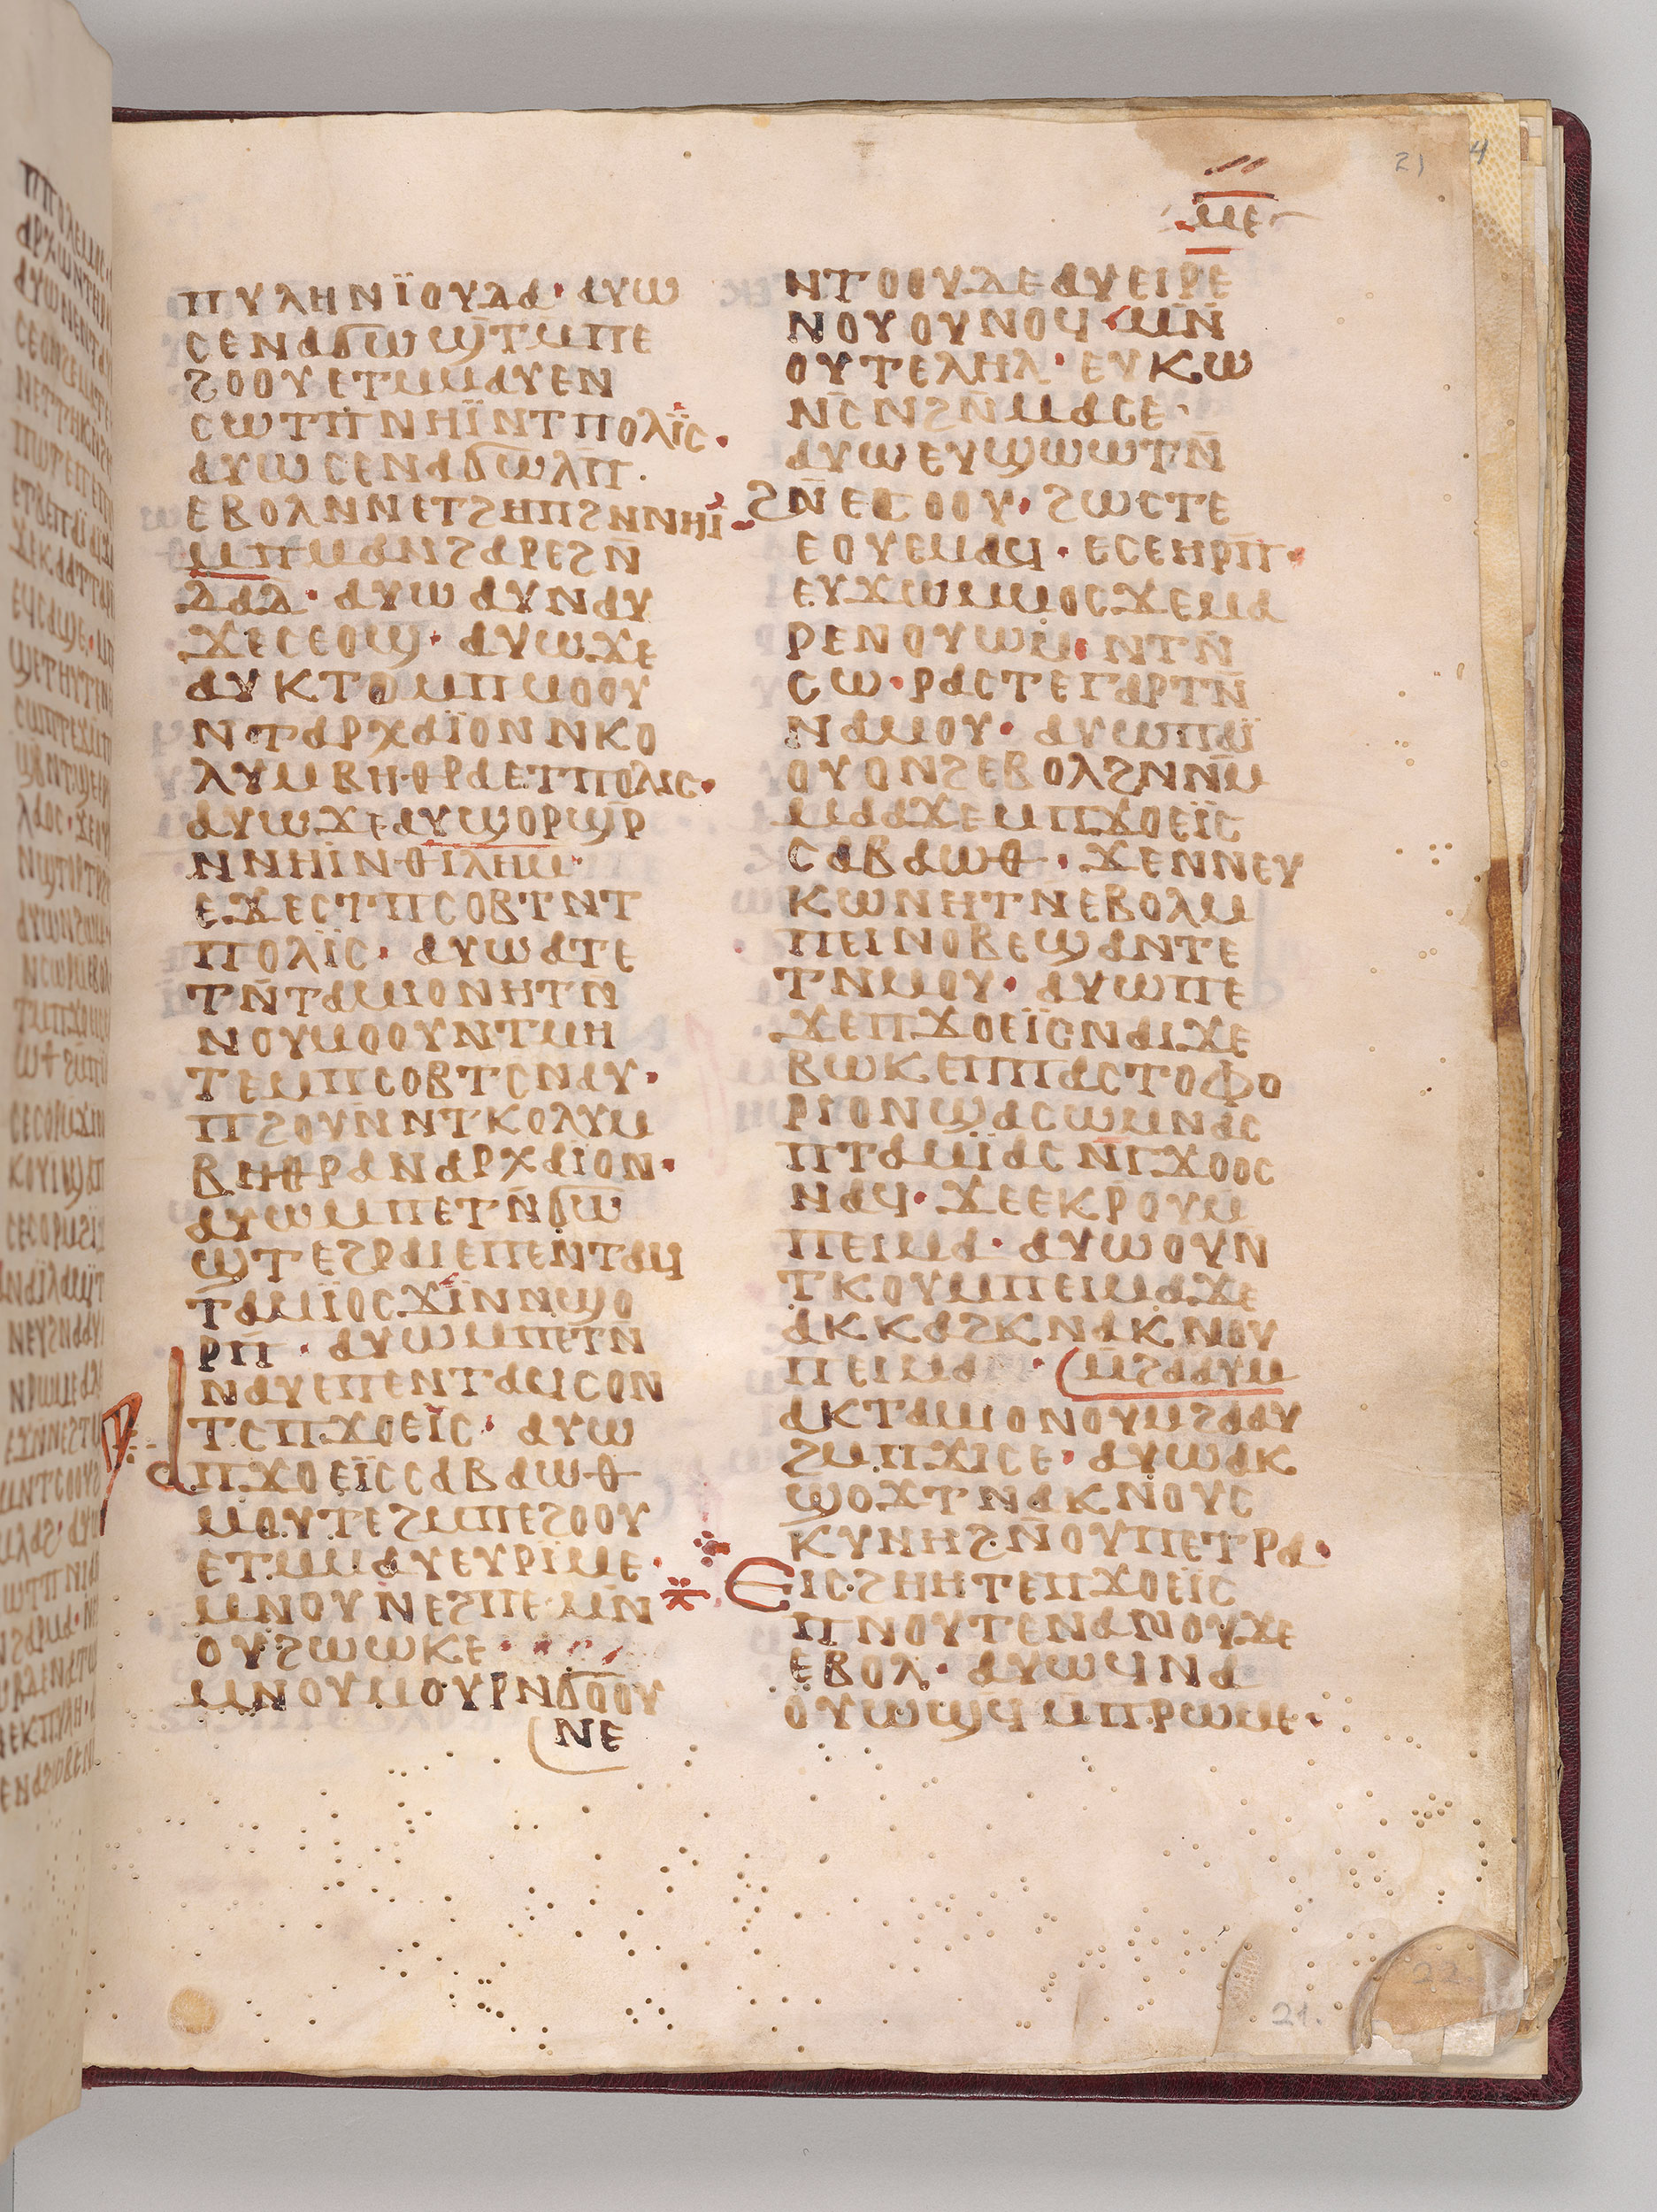 21 4
ⲙⲉ
ⲡⲩⲗⲏⲛⲓ̈ⲟⲩⲇⲁ· ⲁⲩⲱ
ⲥⲉⲛⲁϭⲱϣⲧⲙⲡⲉ
ϩⲟⲟⲩⲉⲧⲙⲙⲁⲩⲉⲛ
ⲥⲱⲧⲡⲛⲏⲓ̈ⲛⲧⲡⲟⲗⲓ̈ⲥ·
ⲁⲩⲱⲥⲉⲛⲁϭⲱⲗⲡ̄·
ⲉⲃⲟⲗⲛⲛⲉⲧϩⲏⲡϩⲛⲛⲏⲓ̈·
ⲙⲡⲙⲁⲛϩⲁⲣⲉϩⲛ̄
ⲇⲁⲇ· ⲁⲩⲱⲁⲩⲛⲁⲩ
ϫⲉⲥⲉⲟϣ· ⲁⲩⲱϫⲉ
ⲁⲩⲕⲧⲟⲙⲡⲙⲟⲟⲩ
ⲛⲧⲁⲣⲭⲁⲓ̈ⲟⲛⲛⲕⲟ
ⲗⲩⲙⲃⲏⲑⲣⲁⲉⲧⲡⲟⲗⲓⲥ·
ⲁⲩⲱϫⲉⲁⲩϣⲟⲣϣⲣ̄
ⲛⲛⲏⲓ̈ⲛⲑⲓⲗⲏⲙ·
ⲉϫⲉⲥⲧⲡⲥⲟⲃⲧⲛⲧ
ⲡⲟⲗⲓ̈ⲥ· ⲁⲩⲱⲁⲧⲉ
ⲧⲛ̄ⲧⲁⲙⲓⲟⲛⲏⲧⲛ̄
ⲛⲟⲩⲙⲟⲟⲩⲛⲧⲙⲏ
ⲧⲉⲙⲡⲥⲟⲃⲧⲥⲛⲁⲩ·
ⲡϩⲟⲩⲛⲛⲧⲕⲟⲗⲩⲙ
ⲃⲏⲑⲣⲁⲛⲁⲣⲭⲁⲓ̈ⲟⲛ·
ⲁⲩⲱⲙⲡⲉⲧⲛ̄ϭⲱ
ϣⲧⲉϩⲣⲁⲓⲉⲡⲉⲛⲧⲁϥ
ⲧⲁⲙⲓ̈ⲟⲥϫⲓ̈ⲛⲛϣⲟ
ⲣⲡ̄· ⲁⲩⲱⲙⲡⲉⲧⲛ̄
ⲛⲁⲩⲉⲡⲉⲛⲧⲁϥⲥⲟⲛ
ⲧⲥⲡϫⲟⲉⲓ̈ⲥ· ⲁⲩⲱ
ⲁⲡϫⲟⲉⲓ̈ⲥⲥⲁⲃⲁⲱⲑ
ⲙⲟⲩⲧⲉϩⲙⲡⲉϩⲟⲟⲩ
ⲉⲧⲙⲙⲁⲩⲉⲩⲣⲓⲙⲉ·
ⲙⲛⲟⲩⲛⲉϩⲡⲉ·ⲙⲛ̄
ⲟⲩϩⲱⲱⲕⲉ·
ⲙⲛⲟⲩⲙⲟⲩⲣⲛϭⲟⲟⲩ
ⲛⲉ
ⲛⲧⲟⲟⲩⲇⲉⲁⲩⲉⲓⲣⲉ
ⲛⲟⲩⲟⲩⲛⲟϥ ⲙⲛ̄
ⲟⲩⲧⲉⲗⲏⲗ· ⲉⲩⲕⲱ
ⲛ̄ⲥⲛϩⲛ̄ⲙⲁⲥⲉ·
ⲁⲩⲱⲉⲩϣⲱⲱⲧⲛ̄
ϩⲛ̄ⲉⲥⲟⲟⲩ· ϩⲱⲥⲧⲉ
ⲉⲟⲩⲉⲙⲁϥ· ⲉⲥⲉⲏⲣⲡ̄·
ⲉⲩϫⲱⲙⲙⲟⲥϫⲉⲙⲁ
ⲣⲉⲛⲟⲩⲱⲙ·ⲛⲧⲛ̄
ⲥⲱ·ⲣⲁⲥⲧⲉⲅⲁⲣⲧⲛ̄
ⲛⲁⲙⲟⲩ· ⲁⲩⲱⲡⲁⲓ̈
ⲟⲩⲟⲛϩⲉⲃⲟⲗϩⲛⲛⲙ̄
ⲙⲁⲁϫⲉⲙⲡϫⲟⲉⲓ̈ⲥ
ⲥⲁⲃⲁⲱⲑ· ϫⲉⲛⲛⲉⲩ
ⲕⲱⲛⲏⲧⲛⲉⲃⲟⲗⲙ
ⲡⲉⲓⲛⲟⲃⲉϣⲁⲛⲧⲉ
ⲧⲛⲙⲟⲩ· ⲁⲩⲱⲡⲉ
ϫⲉⲡϫⲟⲉⲓ̈ⲥⲛⲁⲓϫⲉ
ⲃⲱⲕⲉⲡⲡⲁⲥⲧⲟⲫⲟ
ⲣⲓⲟⲛϣⲁⲥⲱⲙⲛⲁⲥ
ⲡⲧⲁⲙⲓ̈ⲁⲥⲛ̄ⲅϫⲟⲟⲥ
ⲛⲁϥ· ϫⲉⲉⲕⲣⲟⲩⲙ
ⲡⲉⲓⲙⲁ· ⲁⲩⲱⲟⲩⲛ
ⲧⲕⲟⲩⲙⲡⲉⲓⲙⲁϫⲉ
ⲁⲕⲕⲁϩⲕⲛⲁⲕⲛⲟⲩ
ⲡⲉⲓⲙⲁ · ⲙ̄ϩⲁⲁⲩⲙ
ⲁⲕⲧⲁⲙⲟⲛⲟⲩⲙϩⲁⲁⲩ
ϩⲙⲡϫⲓⲥⲉ· ⲁⲩⲱⲁⲕ
ϣⲟϫⲧⲛⲁⲕⲛⲟⲩⲥ
ⲕⲩⲛⲏϩⲛ̄ⲟⲩⲡⲉⲧⲣⲁ·
ⲉⲓⲥϩⲏⲏⲧⲉⲡϫⲟⲉⲓ̈ⲥ
ⲡⲛⲟⲩⲧⲉⲛⲁⲛⲟⲩϫⲉ
ⲉⲃⲟⲗ· ⲁⲩⲱϥⲛⲁ
ⲟⲩⲱϣϥⲙⲡⲣⲱⲙⲉ·
21.
22